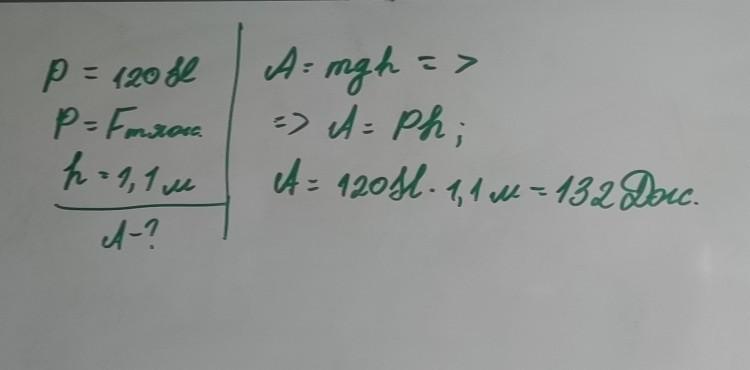 P = 120 Н
P = Fтяж.
h = 1,1 м
A - ?
A = mgh =>
=> A = Ph;
A = 120 Н · 1,1 м = 132 Дж.